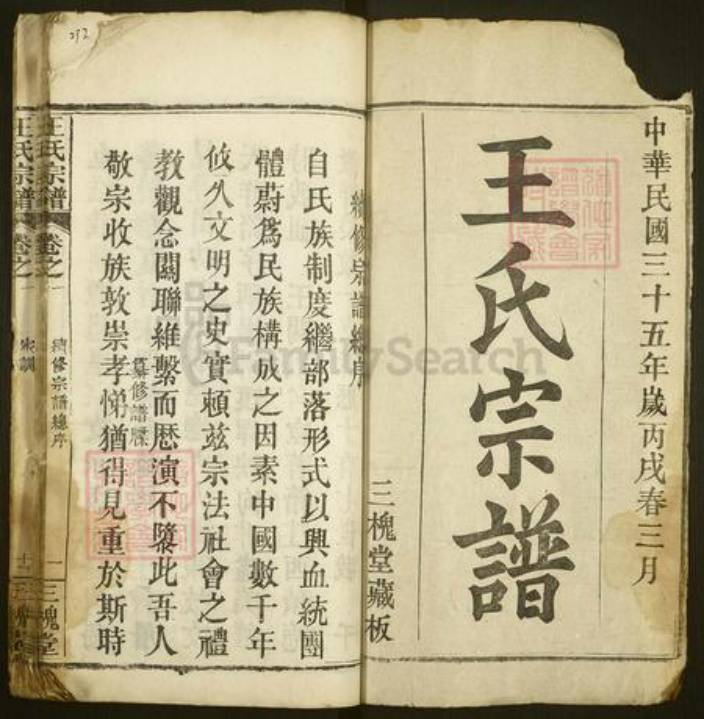 中華民國三十五年歲丙戌春三月
王氏宗譜
三槐堂藏板
續修宗譜總序
自氏族制度繼部落形式以興血統團
體蔚爲民族構成之因素中國數千年
攸久文明之史實賴茲宗法社會之禮
教觀念關聯維繫而歷演不墜此吾人
纂修譜牒
敬宗收族敦崇孝悌猶得見重於斯時
王氏宗譜
卷之一
續修宗譜總序
一
三槐堂
王氏宗譜
卷之一
家訓
十二
FamilySearch
292